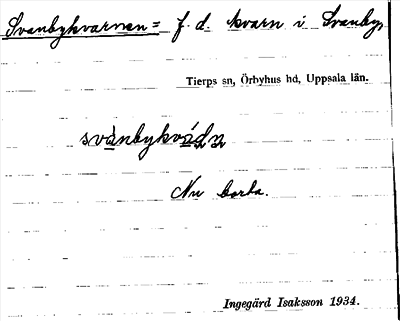 Svanbykvarnen = f. d. kvarn i Svanby,
Tierps sn, Örbyhus hd, Uppsala län.
svànbykvá̤ɖṇ
Nu borta.
Ingegärd Isaksson 1934.